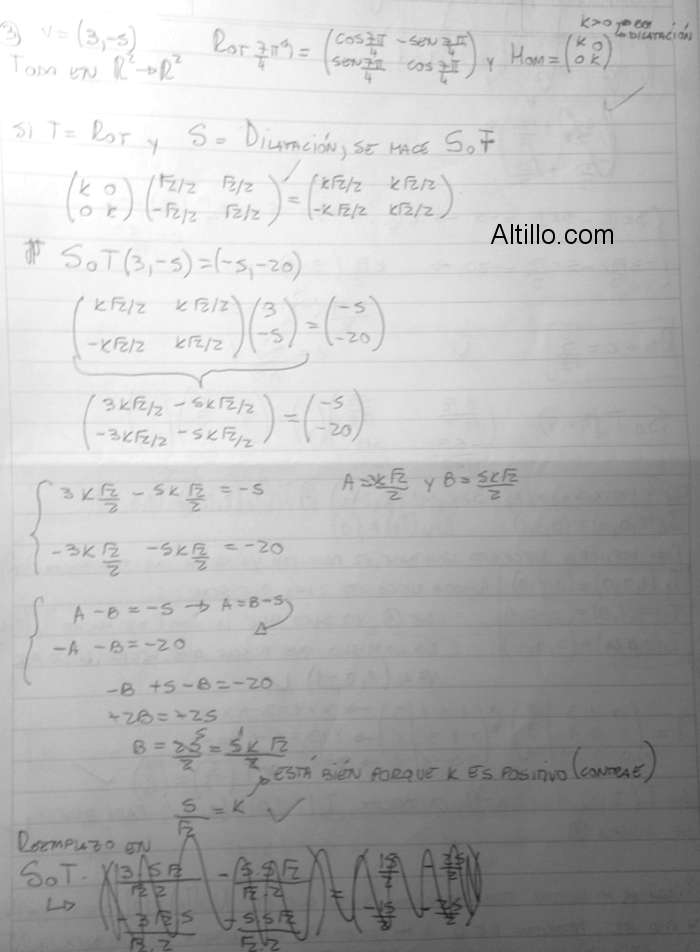 3) V = (3,-5) Rot 7π/4 = (cos 7π/4 -sen 7π/4 / sen 7π/4 cos 7π/4) y Hom = (k 0 / 0 k) k>0
DILATACIÓN
Tom en R² → R²
Si T = Rot y S = DILATACIÓN, SE HACE S∘T
(k 0 / 0 k) (√2/2 √2/2 / -√2/2 √2/2) = (k√2/2 k√2/2 / -k√2/2 k√2/2)
Altillo.com
S∘T(3,-5) = (-5,-20)
(k√2/2 k√2/2 / -k√2/2 k√2/2) (3 / -5) = (-5 / -20)
(3k√2/2 - 5k√2/2 / -3k√2/2 - 5k√2/2) = (-5 / -20)
3k √2/2 - 5k √2/2 = -5 A = 3k√2/2 y B = 5k√2/2
-3k √2/2 - 5k √2/2 = -20
A - B = -5 → A = B - 5
-A - B = -20
-B + 5 - B = -20
+2B = +25
B = 25/2 = 5k√2/2
ESTÁ BIÉN PORQUE K ES POSITIVO (CONTRAE)
5/√2 = k ✓
REEMPLAZO EN
S∘T.